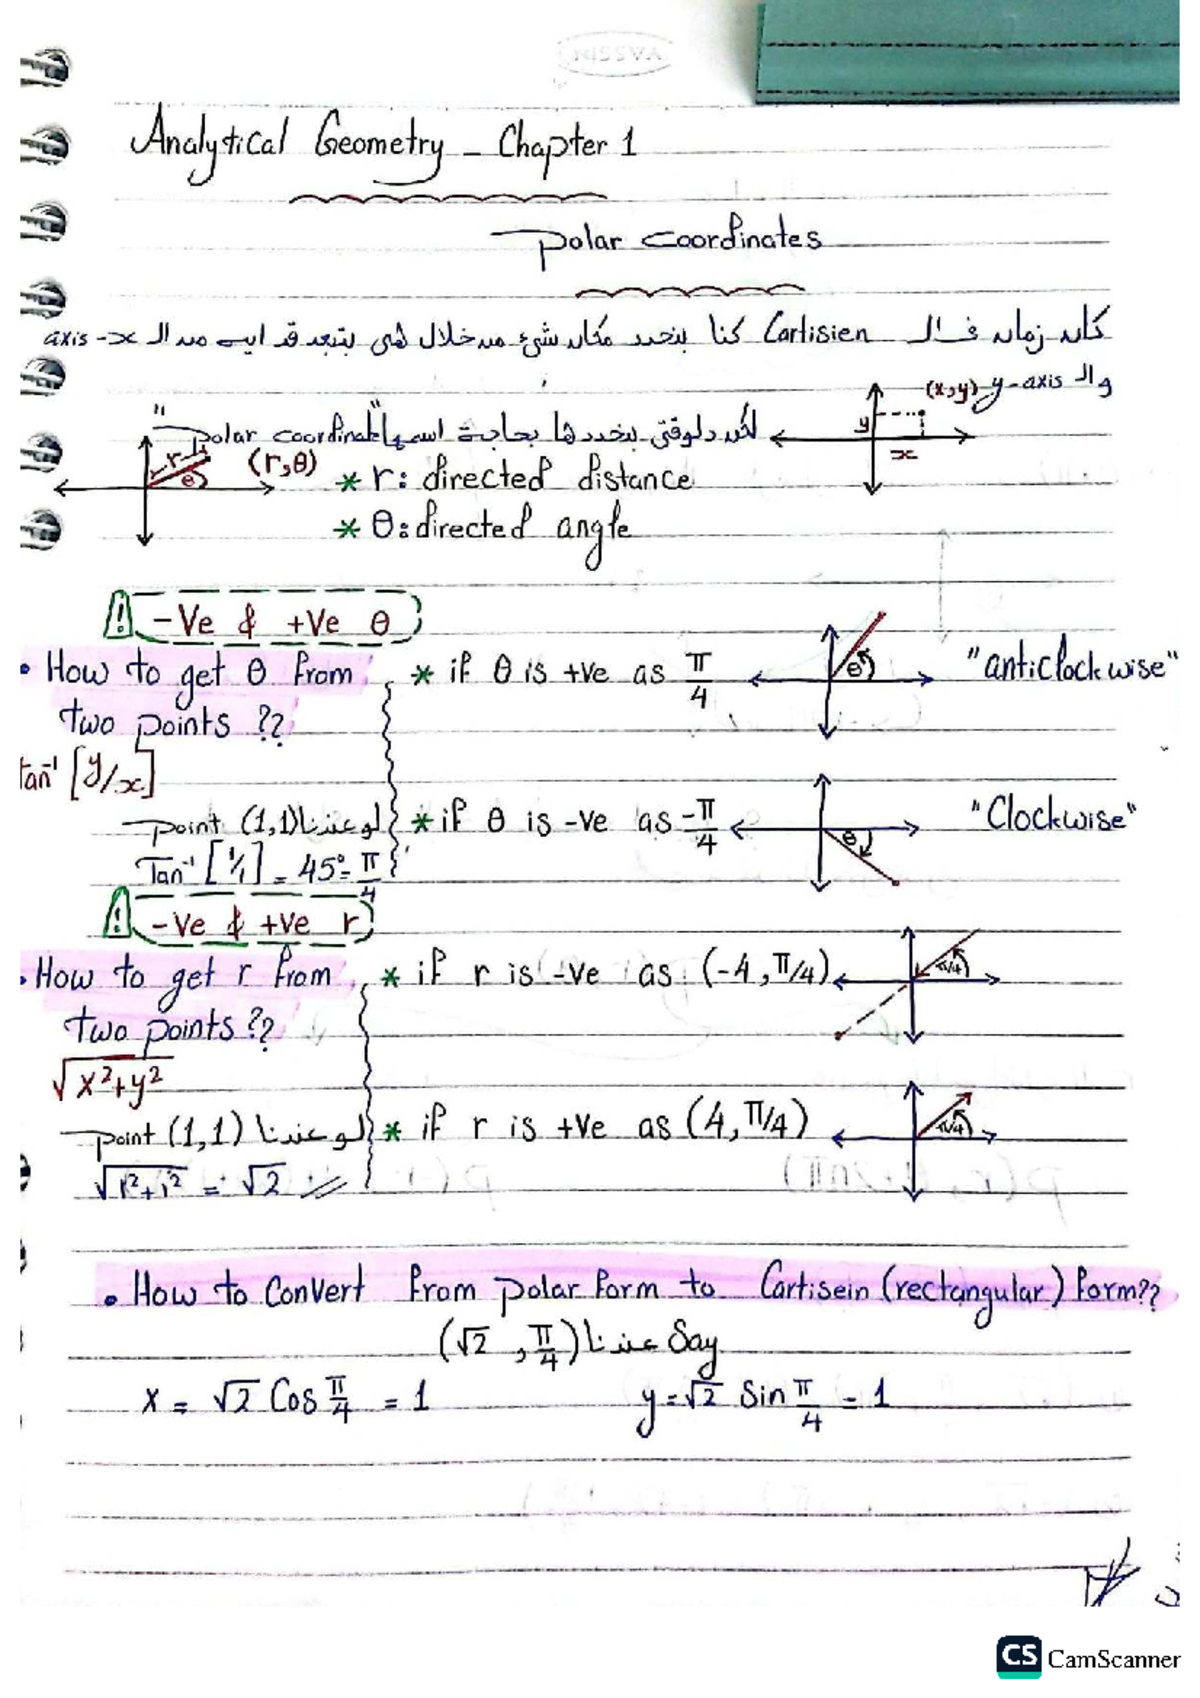 NISSVA
Analytical Geometry - Chapter 1
Polar Coordinates
كان زمان في ال Cartisien كنا بنحدد مكان شئ من خلال هى بتبعد قد ايه من ال x-axis
و ال y-axis
(x,y)
y
x
لكن دلوقتى بنحددها بحاجة اسمها "Polar coordinate"
r
θ
(r,θ)
* r: directed distance
* θ: directed angle
! -Ve & +Ve θ
• How to get θ from
two points ??
tan⁻¹ [y/x]
لو عندنا (1,1) point
Tan⁻¹ [1/1] = 45° = π/4
* if θ is +ve as π/4
θ
"anticlockwise"
* if θ is -ve as -π/4
θ
"Clockwise"
! -Ve & +Ve r
• How to get r from
two points ??
√x²+y²
لو عندنا (1,1) point
√1²+1² = √2
* if r is -ve as (-4, π/4)
π/4
* if r is +ve as (4, π/4)
π/4
• How to Convert from polar form to Cartisein (rectangular) form??
Say عندنا (√2, π/4)
x = √2 Cos π/4 = 1
y = √2 Sin π/4 = 1
CS CamScanner